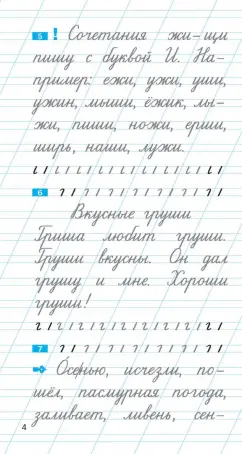 5 ! Сочетания жи-щи
пишу с буквой И. На-
пример: ежи, ужи, уши,
ужин, мыши, ёжик, лы-
жи, пиши, ножи, ерши,
ширь, наши, лужи.
6
Вкусные груши
Гриша любит груши.
Груши вкусны. Он дал
грушу и мне. Хороши
груши!
7
Осенью, исчезли, по-
шёл, пасмурная погода,
заливает, ливень, сен-
4